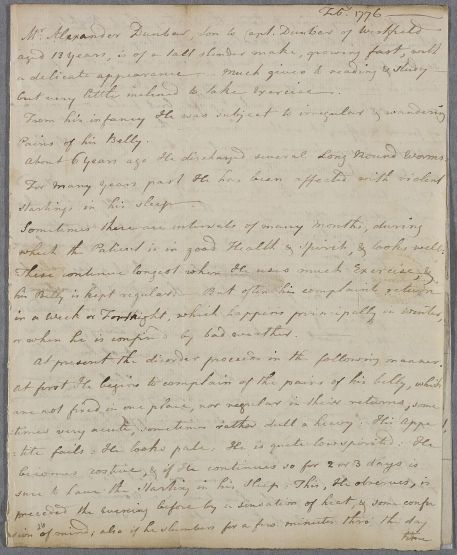 Feb. 1776
Mr. Alexander Dunbar, son to Capt. Dunbar of Westfield
aged 13 years, is of a tall slender make, growing fast, with
a delicate appearance. Much given to reading & study
but very little inclined to take Exercise.
From his infancy He was subject to irregular & wandering
Pains of his Belly.
About 6 years ago He discharged several Long Round Worms.
For many years past He has been affected with violent
startings in his sleep.
Sometimes there are intervals of many months, during
which the Patient is in good Health & Spirits, & looks well:
These continue longest when He uses much Exercise, &
his Belly is kept regular. But often his complaints return
in a Week or Fortnight, which happens principally in winter,
or when he is confined by bad weather.
At present the disorder proceeds in the following manner.
At first He begins to complain of the pains of his belly, which
are not fixed in one place, nor regular in their returns, some
times very acute, sometimes rather dull & heavy: His Appe
tite fails: He looks pale: He is quite lowspirited: He
becomes costive, & if He continues so for 2 or 3 days is
sure to have the Starting in his Sleep: This, He observes, is
preceded the evening before by a sensation of heat & some confu
sion of mind; also if he slumbers for a few minutes thro' the day
time